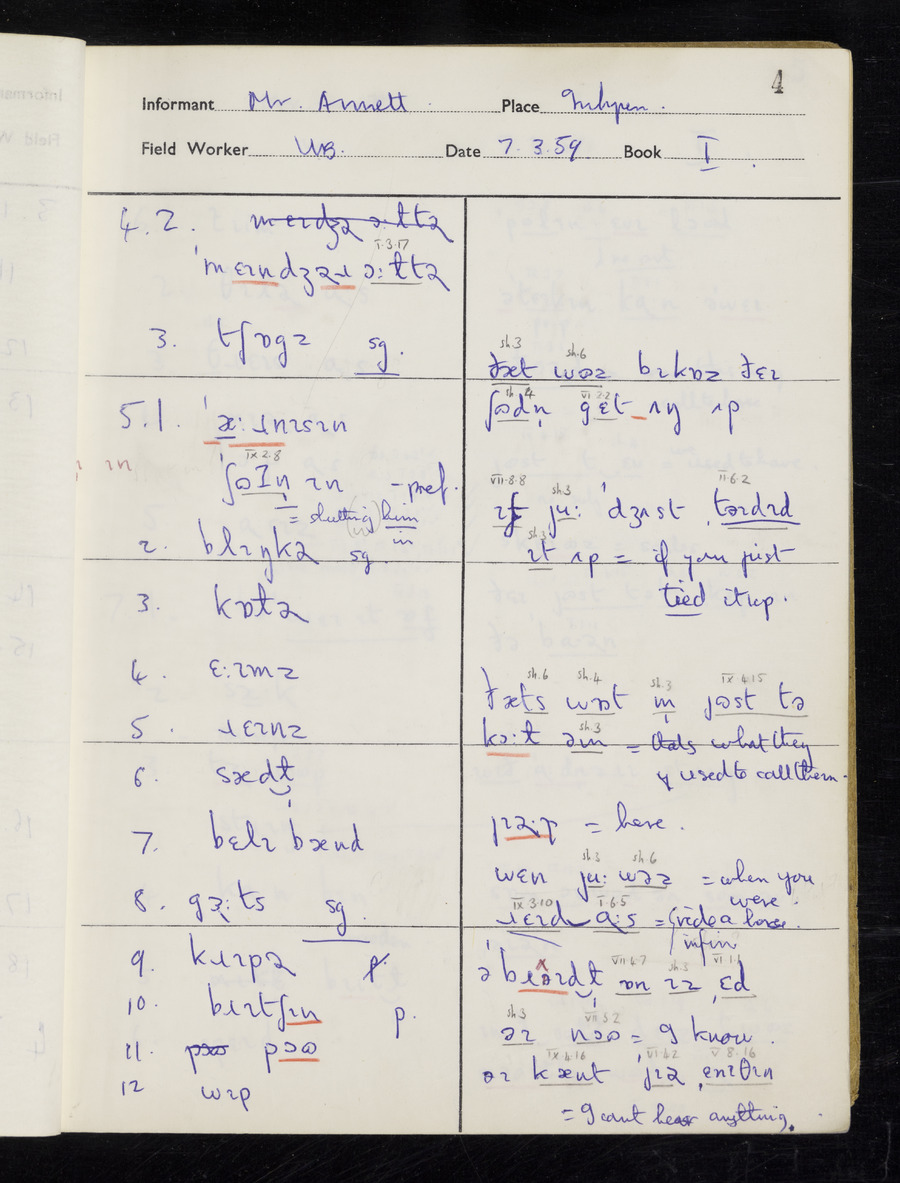 4
Informant Mr. Annett Place Inkpen.
Field Worker Date 7.3.59. Book I
4.2.
I.3.17
3. tʃɒgz sg.
5.1.
IX 2.8
ʃəɪn ɪn - pref.
= shutting (in) him in
2. blɪŋkə sg.
3. kɒtə
4. ɛ:ɪmz
5. ɹɛɪnz
6. sædt̬
7. bɛlɪ bænd
8. gɜ:ts sg.
9. kɪɪpə
10. p.
11. pəʊ
12 wɪp
sh.3 sh.6
ðæt wəz bɪkɒz ðɛɪ
sh.4 VI 2.2
ʃədn̩ gɛt ʌŋ ʌp
VII-8-8 sh.3 II-6.2
ɪf ju: ˈdʒʌst
sh.3
ɪt ʌp = if you just
tied it up.
sh.6 sh.4 sh.3 IX 4.15
ðæts wɒt m̩ jəst tə
sh.3
kɔ:t əm = thats what they
used to call them.
= here.
sh.3 sh.6
wɛn ju: wəz = when you
were.
IX 3.10 I.6.5
ɹɛɪd ə:s = (ride a horse.
infin
VII 4.7 sh.3 VI 1.1
ɒn ɪz ɛd
sh.3 VII 5.2
əɪ nəʊ = I know.
IX 4.16 VI 4.2 V 8.16
əɪ kænt jɪə ɛnɪθɪn
= I cant hear anything.